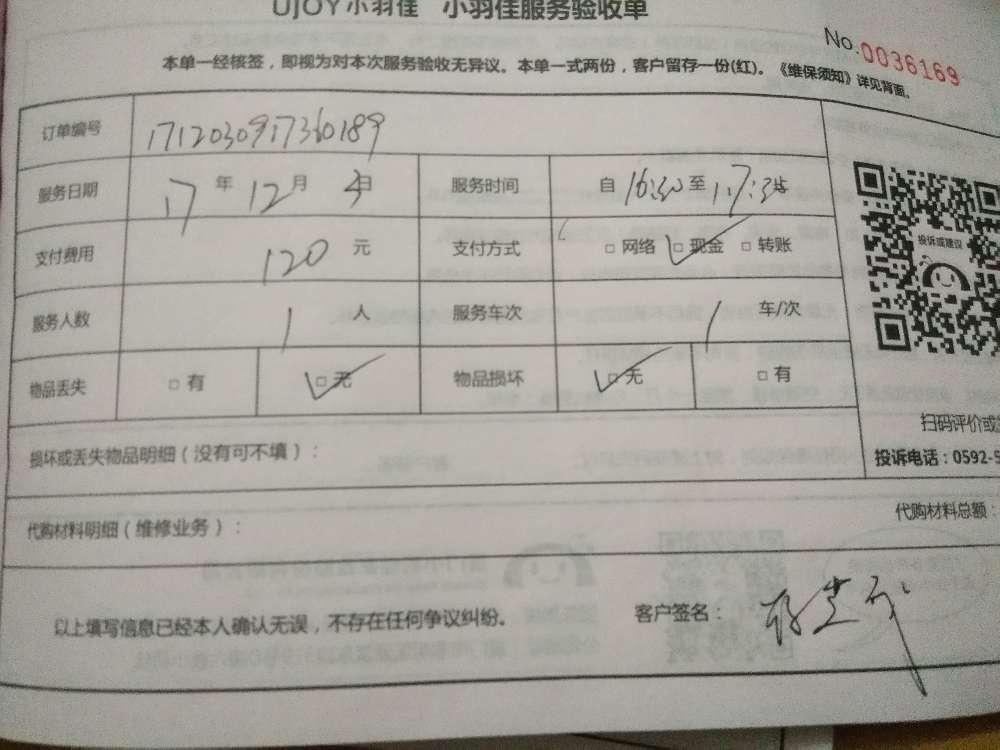 UJOY小羽佳 小羽佳服务验收单
No.0036169
本单一经核签，即视为对本次服务验收无异议。本单一式两份，客户留存一份(红)。《维保须知》详见背面。
订单编号 171203091736 0189
服务日期 17 年 12 月 日 服务时间 自 16:30 至 17:3
支付费用 120 元 支付方式 □ 网络 □ 现金 □ 转账
服务人数 1 人 服务车次 1 车/次
投诉或建议
物品丢失 □ 有 □ 无 物品损坏 □ 无 □ 有
扫码评价或
损坏或丢失物品明细（没有可不填）：
投诉电话：0592-5
代购材料明细（维修业务）：
代购材料总额：
以上填写信息已经本人确认无误，不存在任何争议纠纷。 客户签名：